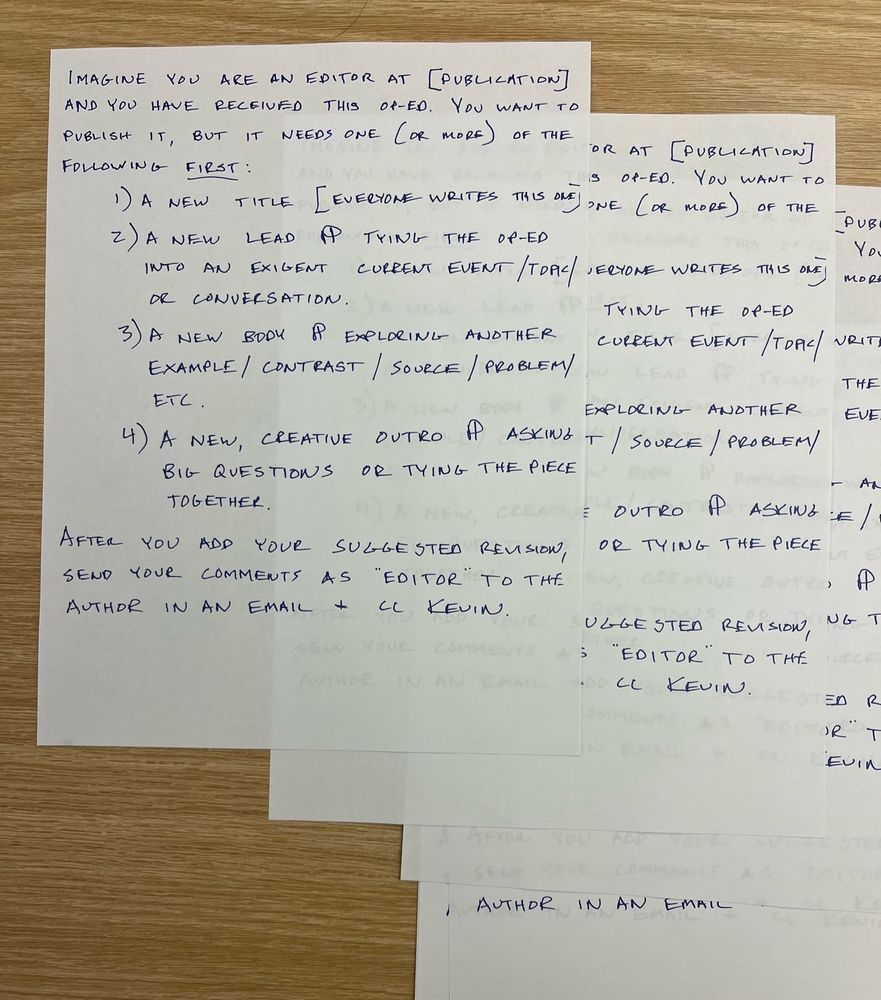 IMAGINE YOU ARE AN EDITOR AT [PUBLICATION]
AND YOU HAVE RECEIVED THIS OP-ED. YOU WANT TO
PUBLISH IT, BUT IT NEEDS ONE (OR MORE) OF THE
FOLLOWING FIRST:
1) A NEW TITLE [EVERYONE WRITES THIS ONE]
2) A NEW LEAD ¶ TYING THE OP-ED
INTO AN EXIGENT CURRENT EVENT/TOPIC/
OR CONVERSATION.
3) A NEW BODY ¶ EXPLORING ANOTHER
EXAMPLE/CONTRAST/SOURCE/PROBLEM/
ETC.
4) A NEW, CREATIVE OUTRO ¶ ASKING
BIG QUESTIONS OR TYING THE PIECE
TOGETHER.
AFTER YOU ADD YOUR SUGGESTED REVISION,
SEND YOUR COMMENTS AS "EDITOR" TO THE
AUTHOR IN AN EMAIL + CC KEVIN.
OR AT [PUBLICATION]
IS OP-ED. YOU WANT TO
ONE (OR MORE) OF THE
VERYONE WRITES THIS ONE]
TYING THE OP-ED
CURRENT EVENT/TOPIC/
EXPLORING ANOTHER
T/SOURCE/PROBLEM/
E OUTRO ¶ ASKING
OR TYING THE PIECE
UGGESTED REVISION,
S "EDITOR" TO THE
CC KEVIN.
[PUB
YOU
MORE
WRIT
THE
EVE
AN
CE/
¶
NG T
ED R
OR" T
EVIN
AUTHOR IN AN EMAIL